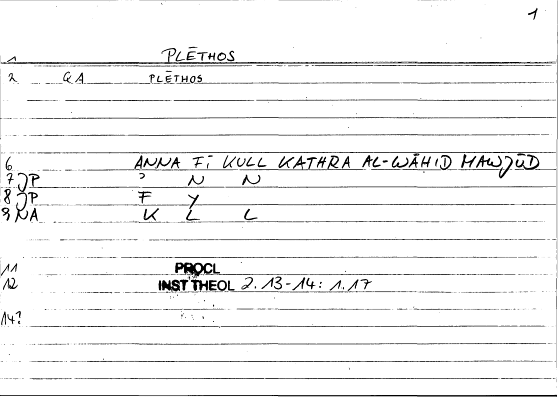 1
1 PLĒTHOS
2 GA PLĒTHOS
6 ANNA FĪ KULL KATHRA AL-WĀHID MAWJŪD
7 JP ? N N
8 JP F Y
9 NA K L L
11 PROCL
12 INST THEOL 2.13-14: 1.17
14?